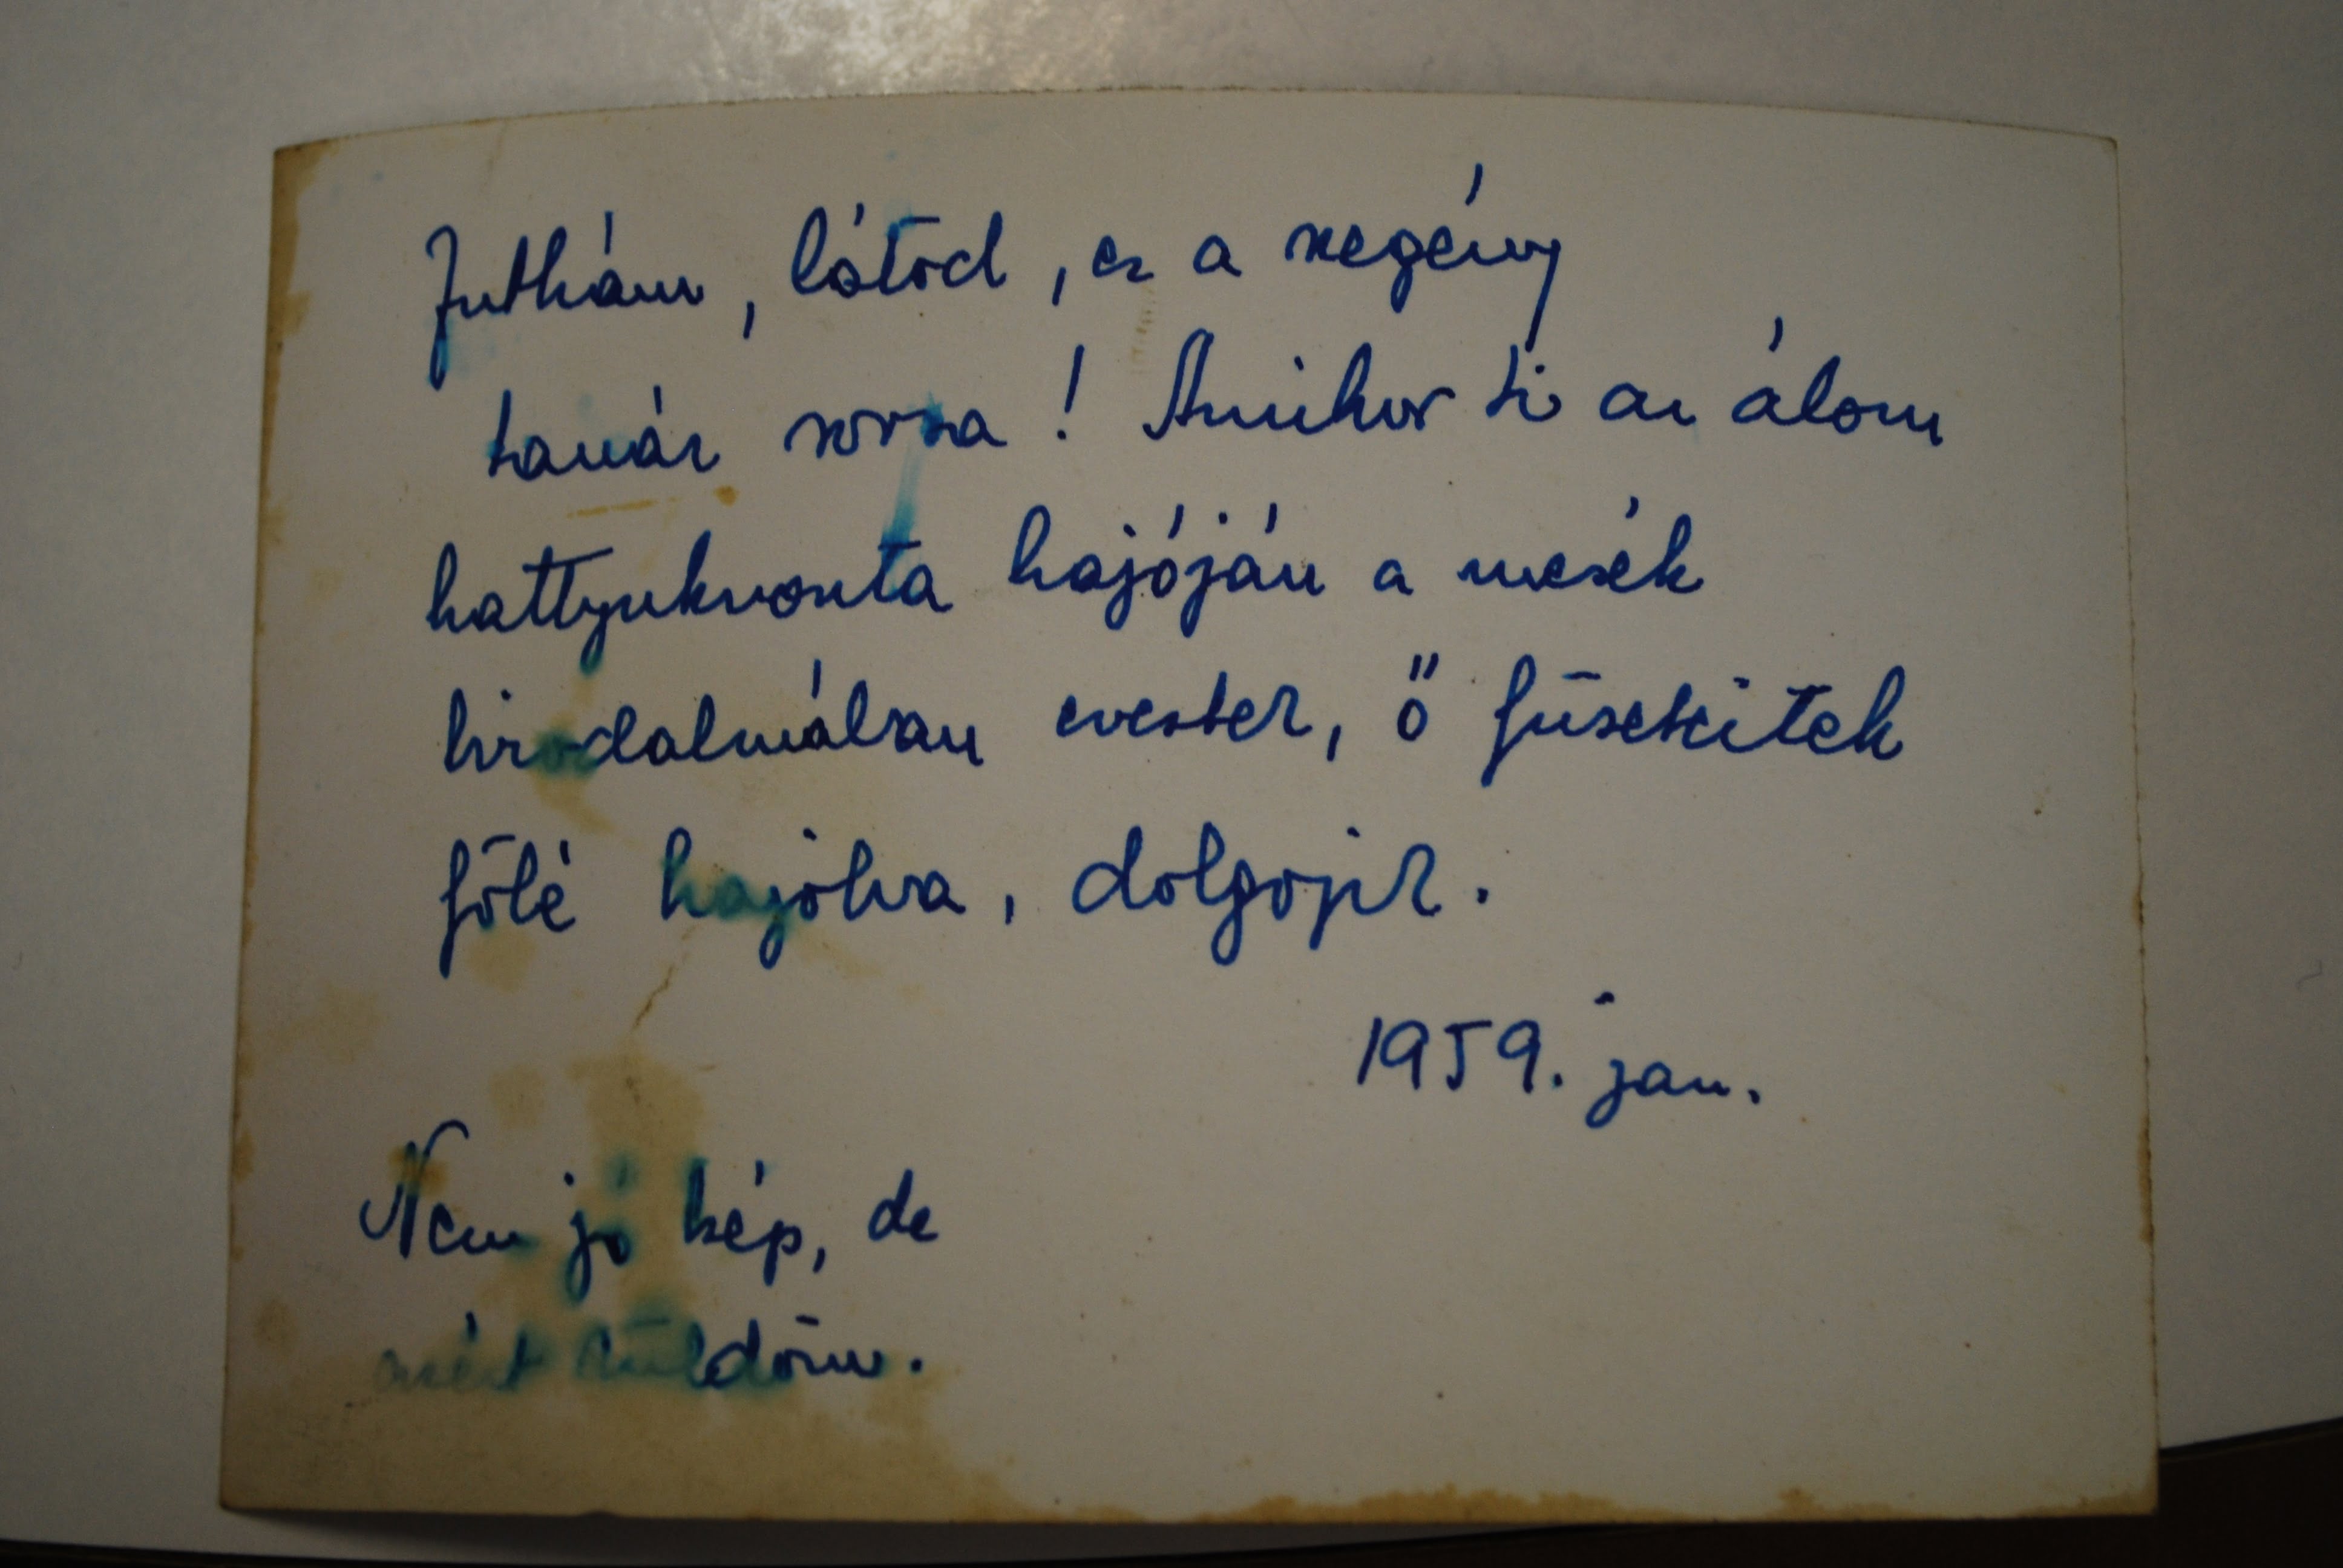 Jutkám, látod, ez a szegény
tanár sorsa! Amikor ti az álom
hattyukvonta hajóján a mesék
birodalmában eveztek, ő füzeteitek
fölé hajolva, dolgozik.
1959. jan.
Nem jó kép, de
azért küldöm.